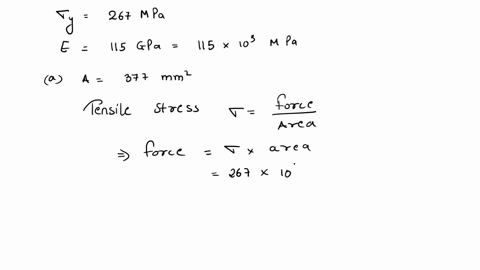 σy = 267 MPa
E = 115 GPa = 115 × 10³ MPa
(a) A = 377 mm²
Tensile stress σ = force / Area
⇒ force = σ × area
= 267 × 10